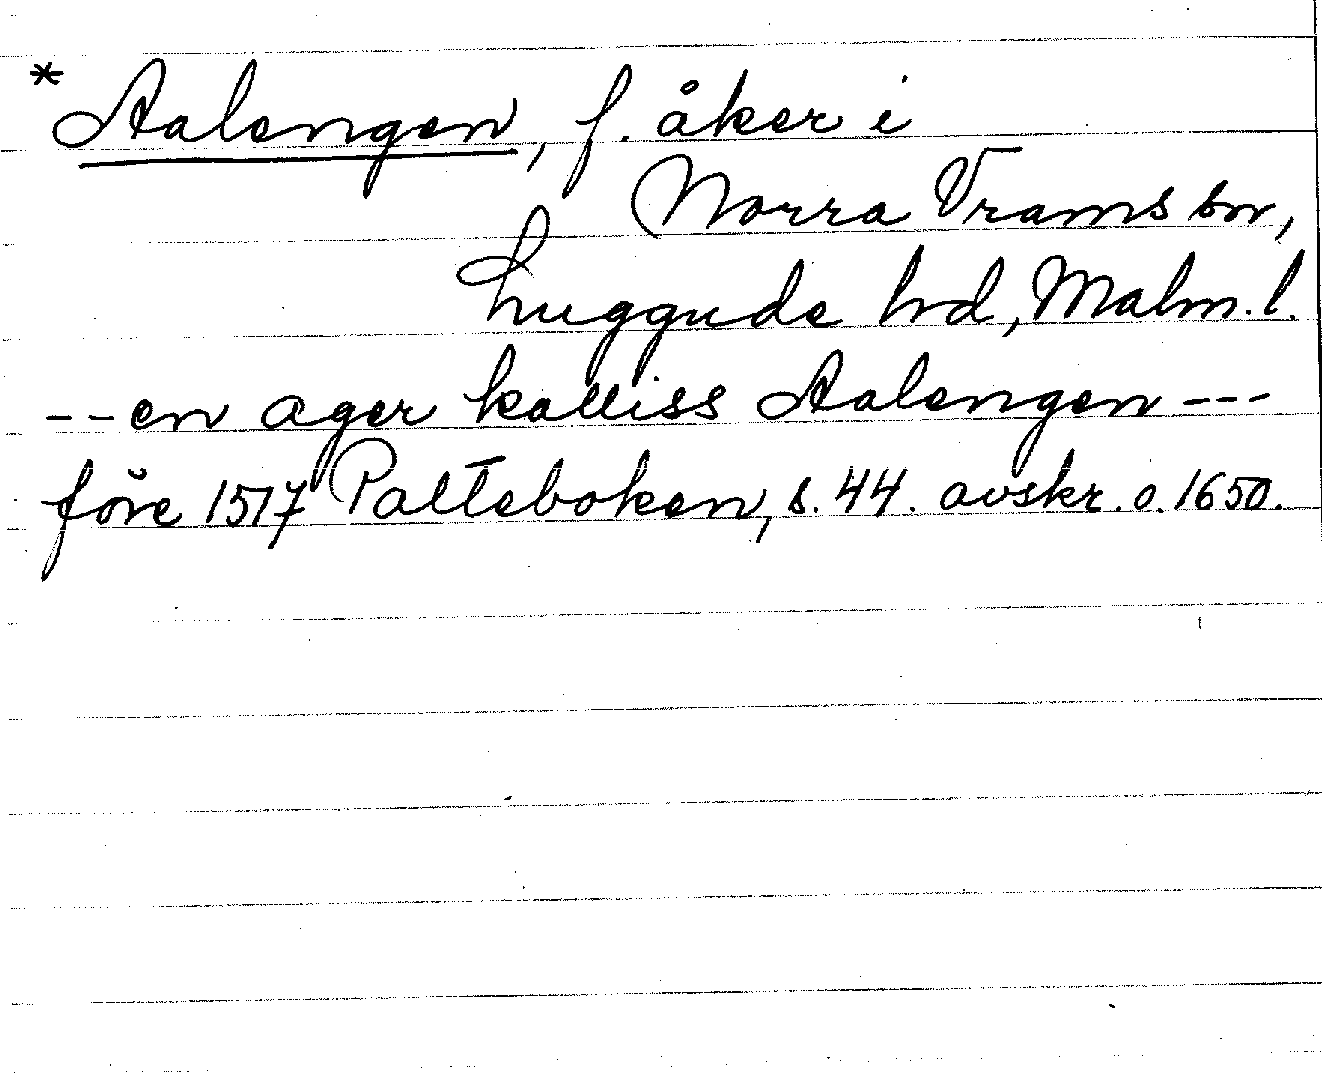 * Aalengen, f. åker i
Norra Vrams sn,
Luggude hd, Malm. l.
-- en ager kalliss Aalengen ---
före 1517 Palteboken, s. 44. avskr. o. 1650.